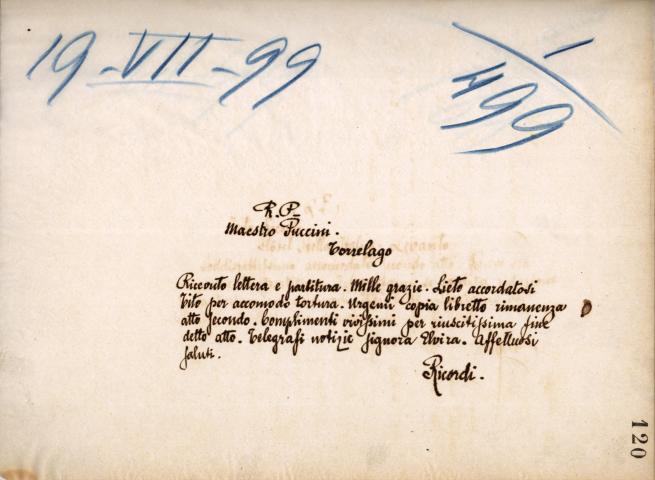 19-VII-99
1
499
R. P.
Maestro Puccini.
Torrelago
Ricevuto lettera e partitura. Mille grazie. Lieto accordatosi
Tito per accomodo tortura. Urgemi copia libretto rimanenza
atto secondo. Complimenti vivissimi per riuscitissima fine
detto atto. Telegrafi notizie Signora Elvira. Affettuosi
saluti.
Ricordi.
120